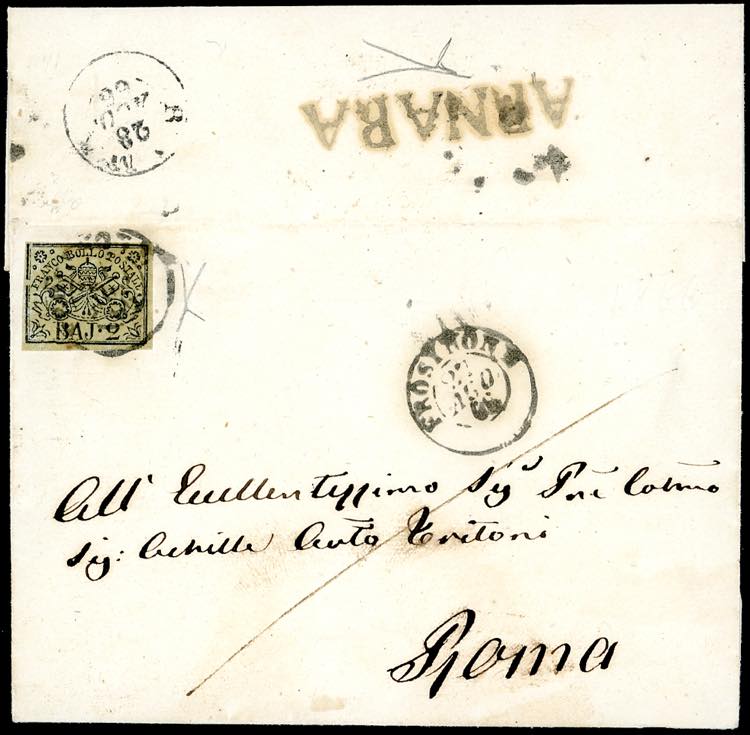 ARNARA
28
AGO
66
FRANCO BOLLO POSTALE
BAJ·2
FROSINONE
AGO
66
All' Eccellentissimo Sig.r Pne Colmo
Sig: Achille Avto Tritoni
Roma